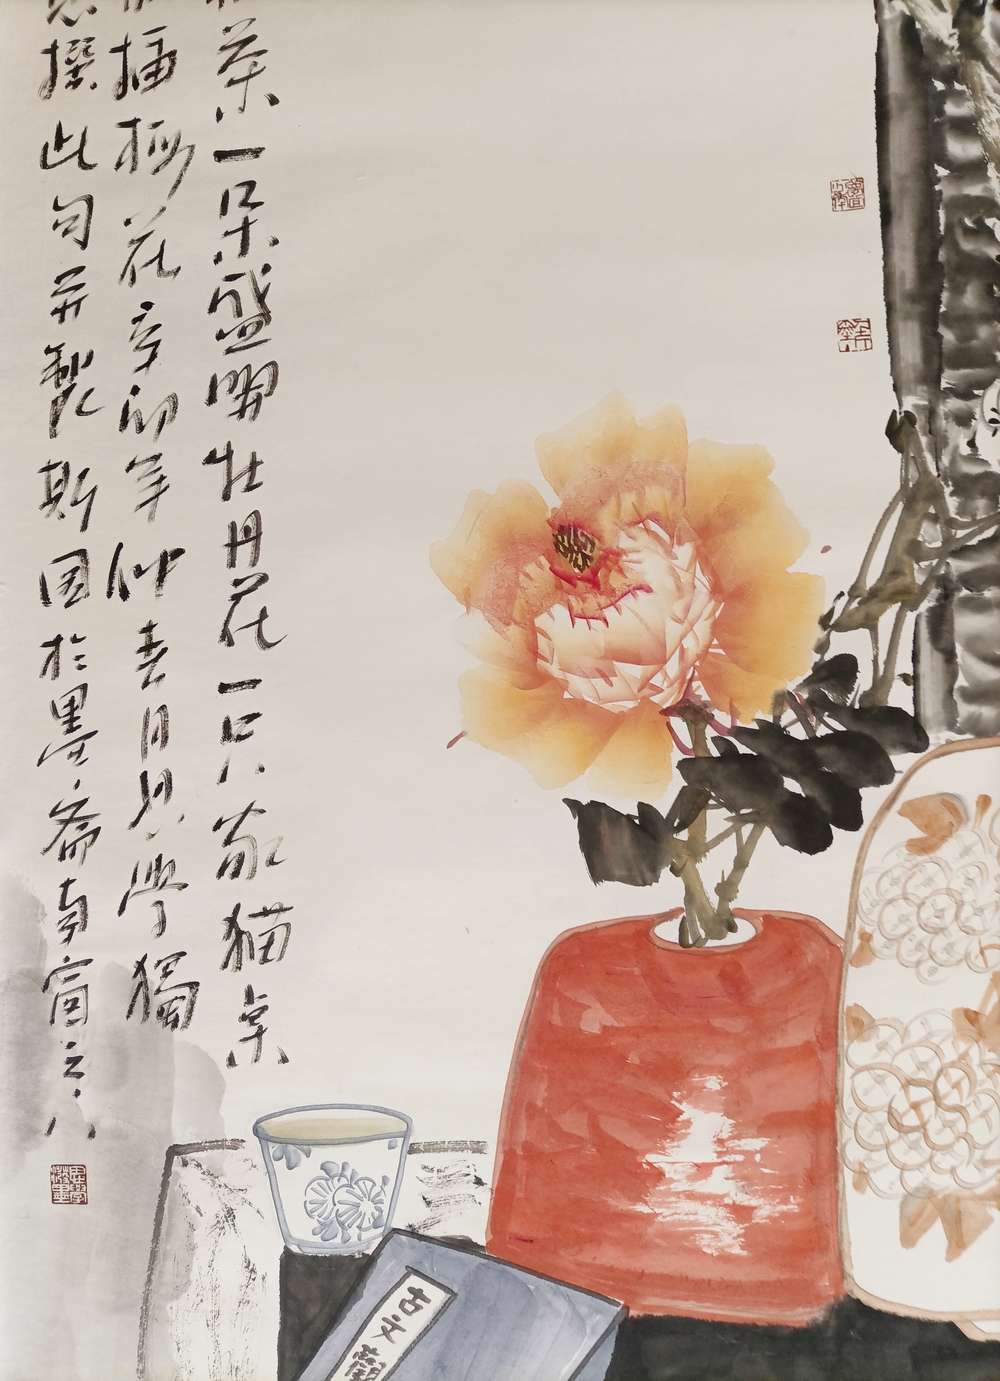 茶一朵盛開牡丹花一只家猫桌
插梅花辛卯年仲春月思學獨
撰此句并製斯图於墨斋南窗之八
古文